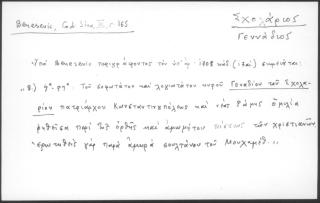 Benesevic, Cod. Sin. 165
Σχολάριος
Γεννάδιος
Ὑπὸ Benesevic περιγράφοντος τὸν ὑπ' ἀρ. 1808 κώδ. σημειοῦται:
"8.) Τοῦ σοφωτάτου καὶ λογιωτάτου κυροῦ Γεναδίου τοῦ Σχολα-
ρίου πατριάρχου Κωνσταντινουπόλεως καὶ νέας Ῥώμης ὁμιλία
ῥηθεῖσα περὶ τῆς ὀρθῆς καὶ ἀμωμήτου πίστεως τῶν χριστιανῶν
ἐρωτηθεὶς γὰρ παρὰ ἀμηρᾶ σουλτάνου τοῦ Μουχαμέθ..."